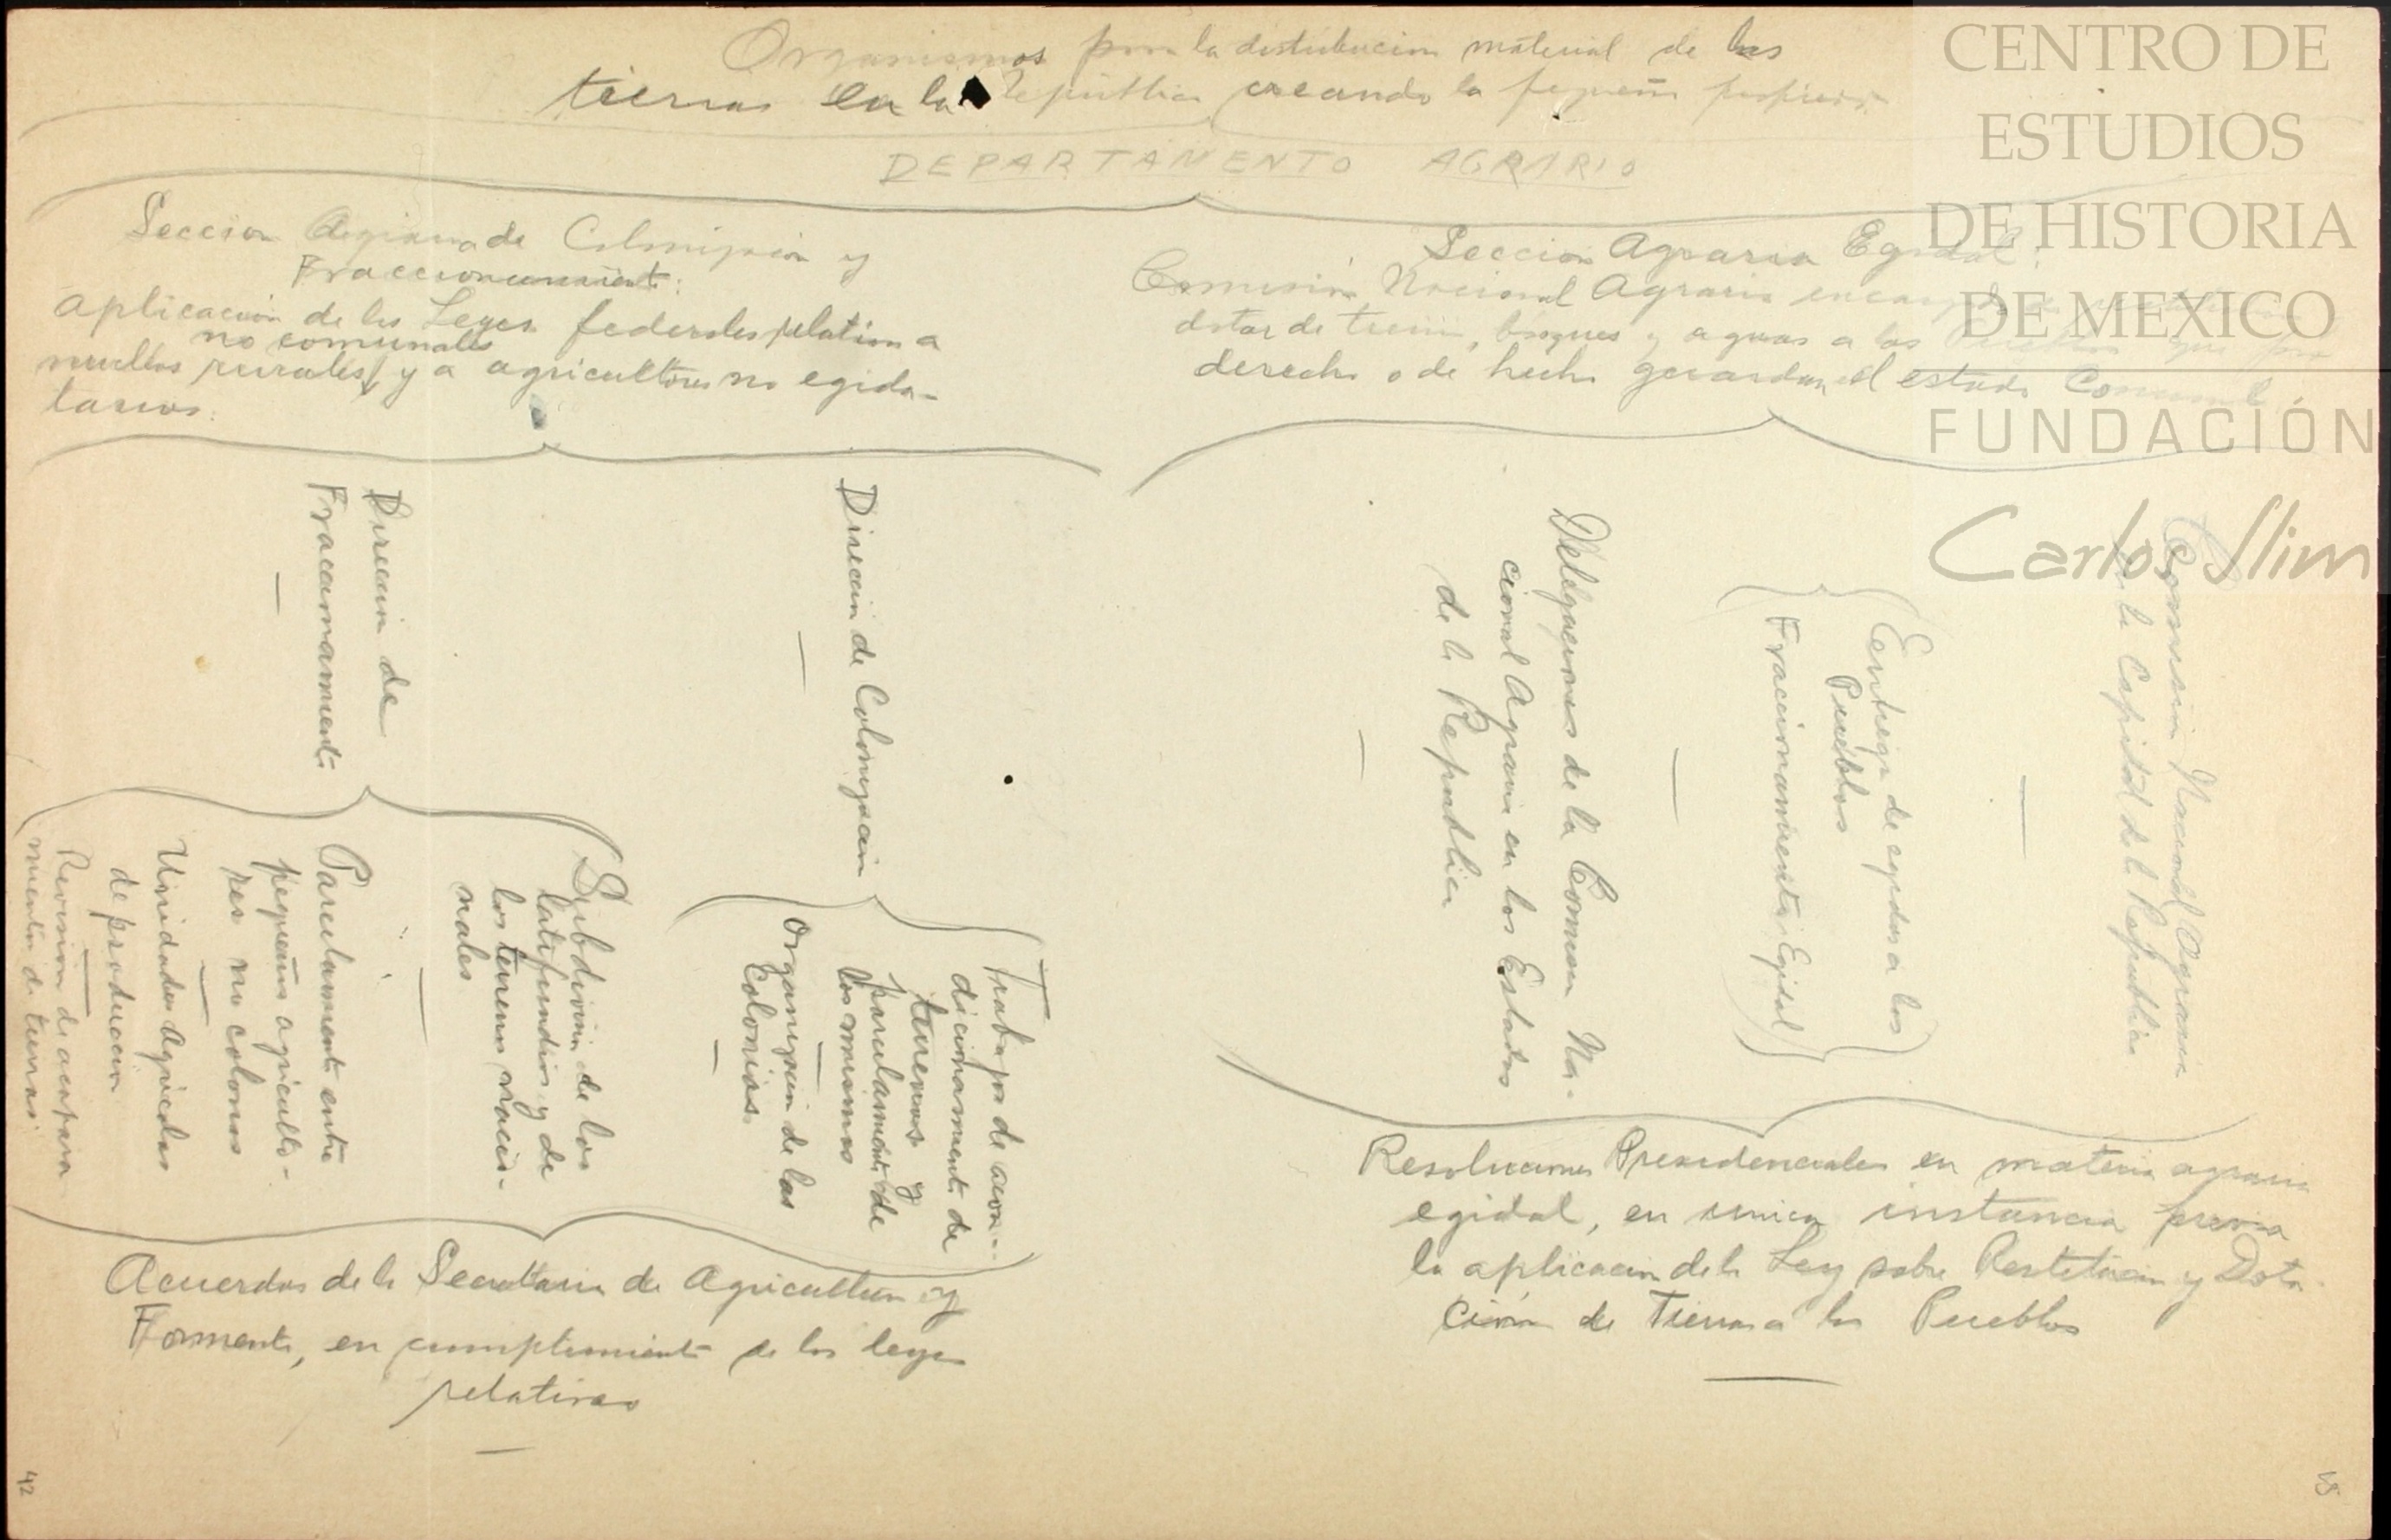 Organismos para la distribucion material de las
tierras en la Republica creando la pequeña
DEPARTAMENTO AGRARIO
Seccion Agraria de Colonizacion y
Fraccionamiento:
Aplicacion de las Leyes federales relativa a
no comunales
nucleos rurales, y a agricultores no egida-
tarios.
Seccion Agraria Egidal:
Comision Nacional Agraria encargada
dotar de tierras, bosques y aguas a los
derecho o de hecho guardan el estado Comunal.
Direccion de
Fraccionamiento
Subdivision de los
latifundios y de
los terrenos nacio-
nales
Parcelamiento entre
pequeños agriculto-
res no colonos
Unidades Agricolas
de produccion
Revision de
miento de tierras.
Direccion de Colonizacion
Trabajos de acon-
dicionamiento de
terrenos y
parcelamiento de
los mismos
Organizacion de las
Colonias.
Acuerdos de la Secretaria de Agricultura y
Fomento, en cumplimiento de las leyes
relativas
Comision Nacional Agraria
en la Capital de la Republica
Entrega de egidos a los
Pueblos
Fraccionamiento Egidal
Delegaciones de la Comision Na-
cional Agraria en los Estados
de la Republica
Resoluciones Presidenciales en materia agraria
egidal, en unica instancia previa
la aplicacion de la Ley sobre Restitucion y Dota
cion de Tierras a los Pueblos
42
CENTRO DE
ESTUDIOS
DE HISTORIA
DE MEXICO
FUNDACIÓN
Carlos Slim